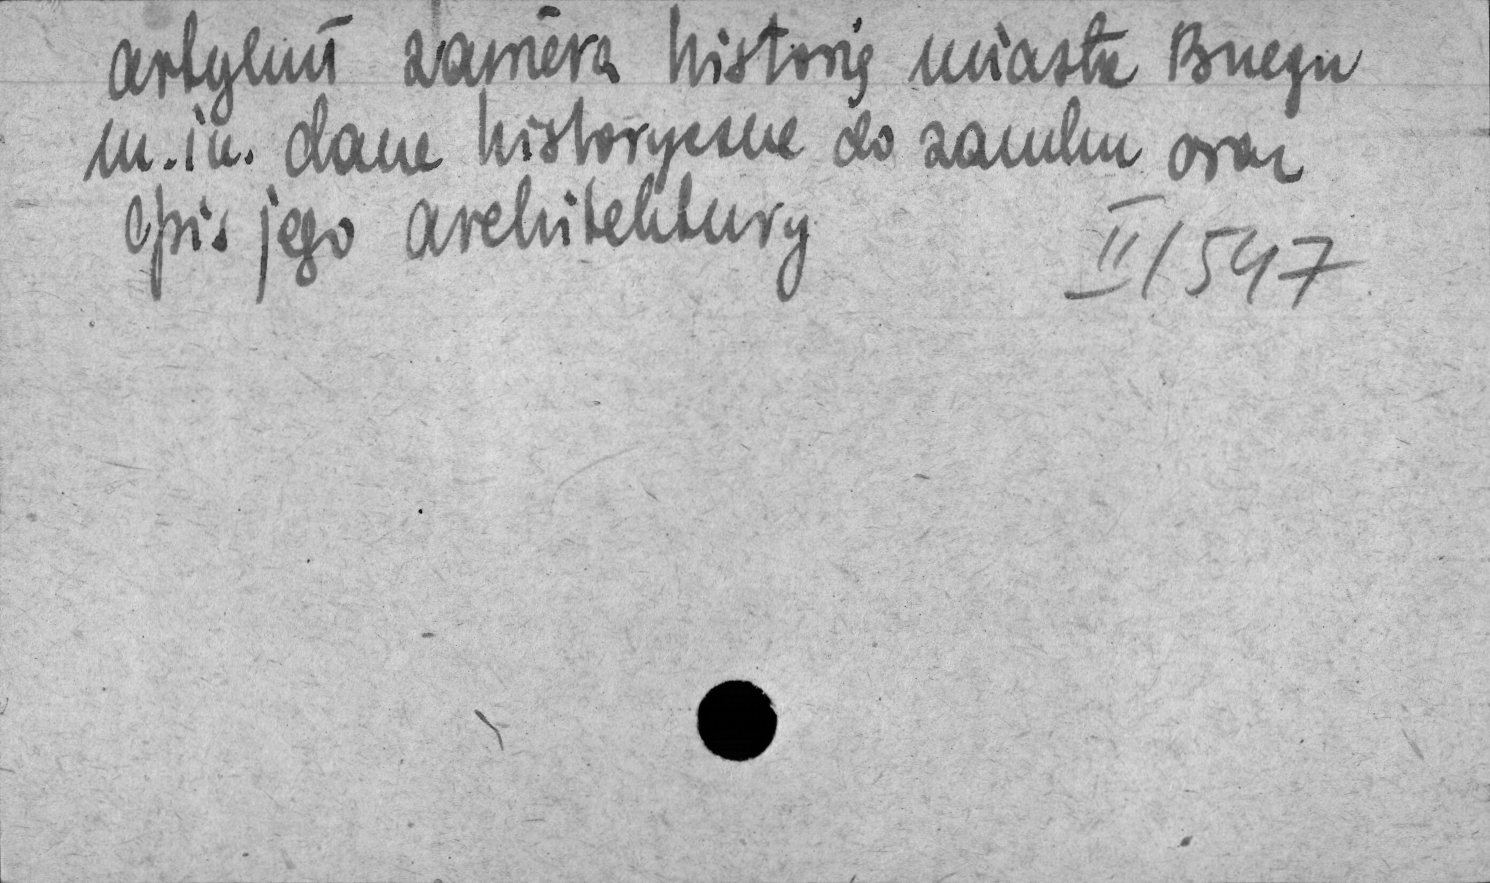 artykuł zawiera historię miasta Brzegu
m.in. dane historyczne do zamku oraz
opis jego architektury
II/547